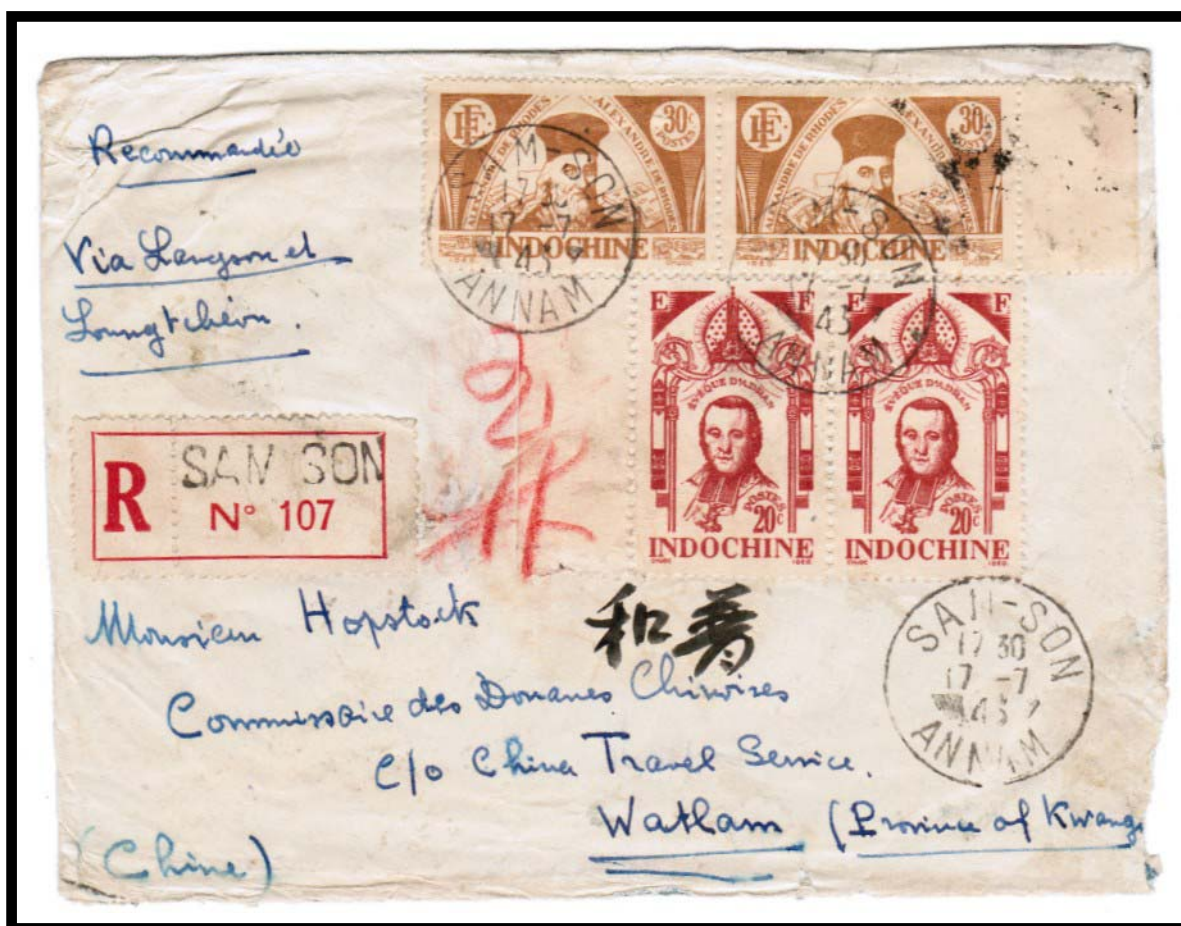 Recommandée
Via Langson et
Loungtchéou.
EF ALEXANDRE DE RHODES ALEXANDRE DE RHODES 30c POSTES
INDOCHINE
EF ALEXANDRE DE RHODES ALEXANDRE DE RHODES 30c POSTES
INDOCHINE
SAM-SON
17 30
17 -7
43
ANNAM
SAM-SON
17 30
17 -7
43
ANNAM
E F
EVEQUE D'ADRAN
POSTES
20c
INDOCHINE
E F
EVEQUE D'ADRAN
POSTES
20c
INDOCHINE
R SAM SON
N° 107
SAM-SON
17 30
17 -7
43
ANNAM
Monsieur Hopstock
和普
Commissaire des Douanes Chinoises
c/o China Travel Service.
Watlam (Province of Kwangs
(Chine)